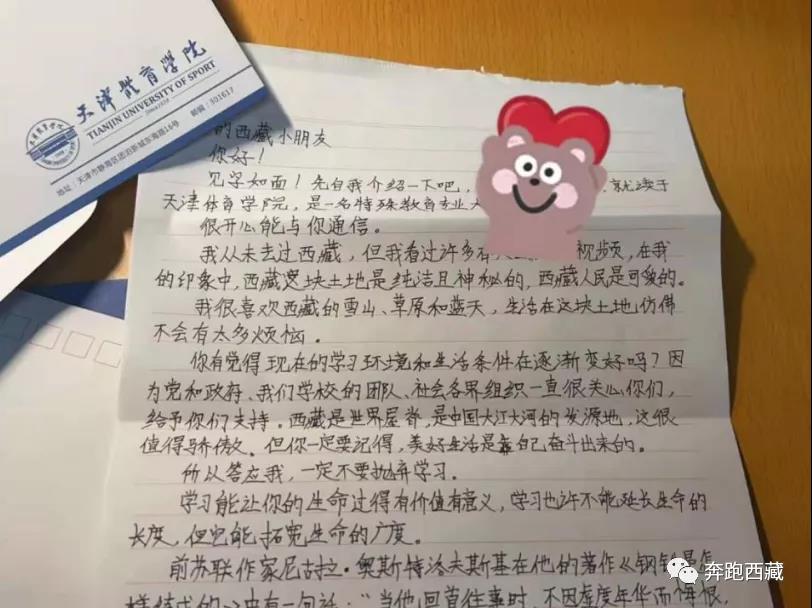 天津体育学院
TIANJIN UNIVERSITY OF SPORT
地址：天津市静海区团泊新城东海路16号 邮编：301617
的西藏小朋友
你好！
见字如面！先自我介绍一下吧，就读于
天津体育学院，是一名特殊教育专业大
很开心能与你通信。
我从未去过西藏，但我看过许多有 视频，在我
的印象中，西藏这块土地是纯洁且神秘的，西藏人民是可爱的。
我很喜欢西藏的雪山、草原和蓝天，生活在这块土地仿佛
不会有太多烦恼。
你有觉得现在的学习环境和生活条件在逐渐变好吗？因
为党和政府、我们学校的团队、社会各界组织一直很关心你们，
给予你们支持。西藏是世界屋脊，是中国大江大河的发源地，这很
值得骄傲。但你一定要记得，美好生活是靠自己奋斗出来的。
所以答应我，一定不要抛弃学习。
学习能让你的生命过得有价值有意义，学习也许不能延长生命的
长度，但它能拓宽生命的广度。
前苏联作家尼古拉·奥斯特洛夫斯基在他的著作《钢铁是怎
样炼成的》中有一句话：“当他回首往事时，不因虚度年华而悔恨，
奔跑西藏